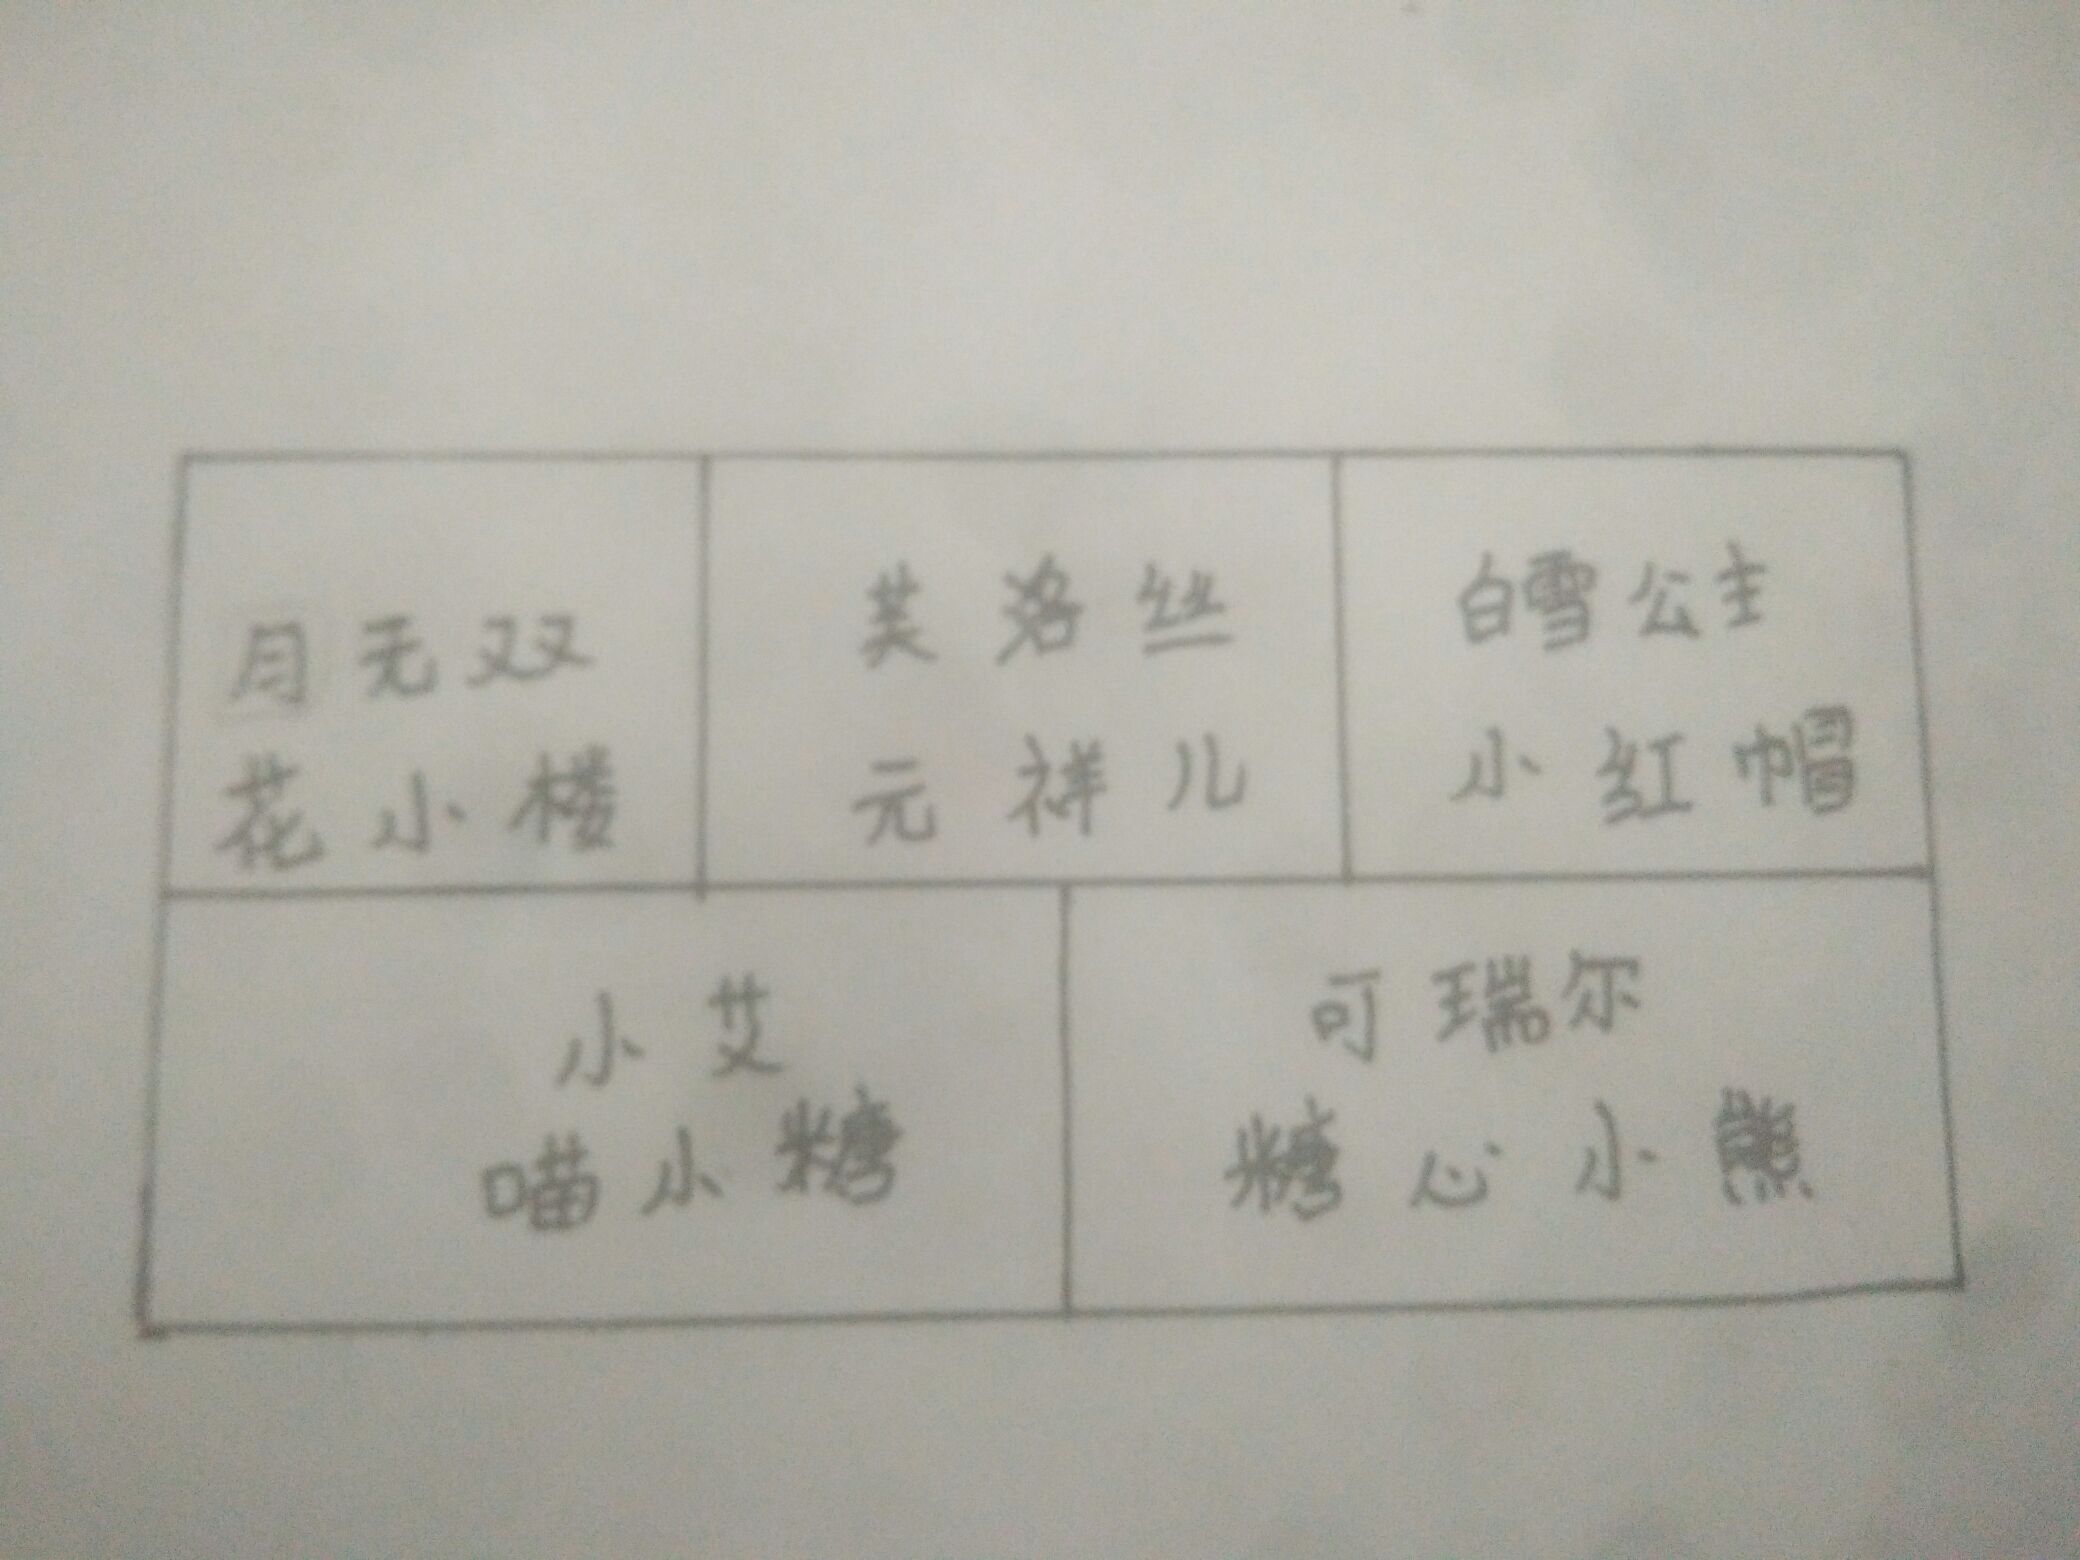 月无双
花小楼
芙洛丝
元祥儿
白雪公主
小红帽
小艾
喵小糖
可瑞尔
糖心小熊